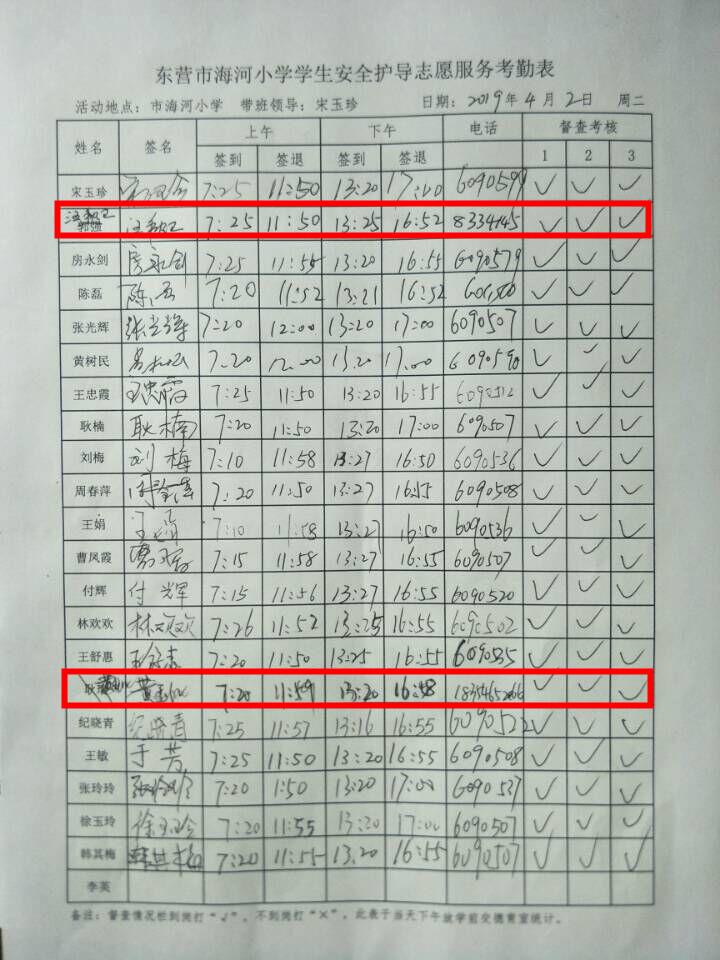 东营市海河小学学生安全护导志愿服务考勤表
活动地点：市海河小学 带班领导：宋玉珍 日期：2019年4月2日 周二
姓名 签名 上午 下午 电话 督查考核
签到 签退 签到 签退 1 2 3
宋玉珍 7:25 11:50 13:20 17:00 6090599 ✓ ✓ ✓
7:25 11:50 13:25 16:52 8334145 ✓ ✓ ✓
房永剑 房永剑 7:25 11:55 13:20 16:55 6090579 ✓ ✓ ✓
陈磊 陈磊 7:20 11:52 13:21 16:52 ✓ ✓ ✓
张光辉 张光辉 7:20 12:00 13:20 17:00 6090507 ✓ ✓ ✓
黄树民 7.20 12.00 13.20 17.00 6090590 ✓ ✓ ✓
王忠霞 王忠霞 7:25 11:50 13:20 16:55 6090512 ✓ ✓ ✓
耿楠 耿楠 7:20 11:50 13:20 17:00 6090507 ✓ ✓ ✓
刘梅 刘梅 7:10 11:58 13:27 16:50 6090536 ✓ ✓ ✓
周春萍 周春萍 7:20 11:50 13:27 16:55 6090508 ✓ ✓ ✓
王娟 王娟 7:10 11:58 13:27 16:50 6090536 ✓ ✓ ✓
曹凤霞 7:15 11:58 13:27 16:55 6090507 ✓ ✓ ✓
付辉 付辉 7:15 11:56 13:27 16:55 6090520 ✓ ✓ ✓
林欢欢 林欢欢 7:26 11:52 13:25 16:55 6090502 ✓ ✓ ✓
王舒惠 王舒惠 7:20 11:50 13:25 16:55 6090535 ✓ ✓ ✓
7:20 11:59 13:20 16:58 ✓ ✓ ✓
纪晓青 纪晓青 7:25 11:57 13:16 16:55 6090522 ✓ ✓ ✓
王敏 于芳 7:25 11:50 13:20 16:55 6090508 ✓ ✓ ✓
张玲玲 张玲玲 7:20 1:50 13:20 17:00 6090537 ✓ ✓ ✓
徐玉玲 徐玉玲 7:20 11:55 13:20 17:00 6090507 ✓ ✓ ✓
韩其梅 韩其梅 7:20 11:55 13:20 16:55 6090507 ✓ ✓ ✓
李英
备注：督查情况栏到岗打“√”，不到岗打“×”，此表于当天下午放学前交德育室统计。